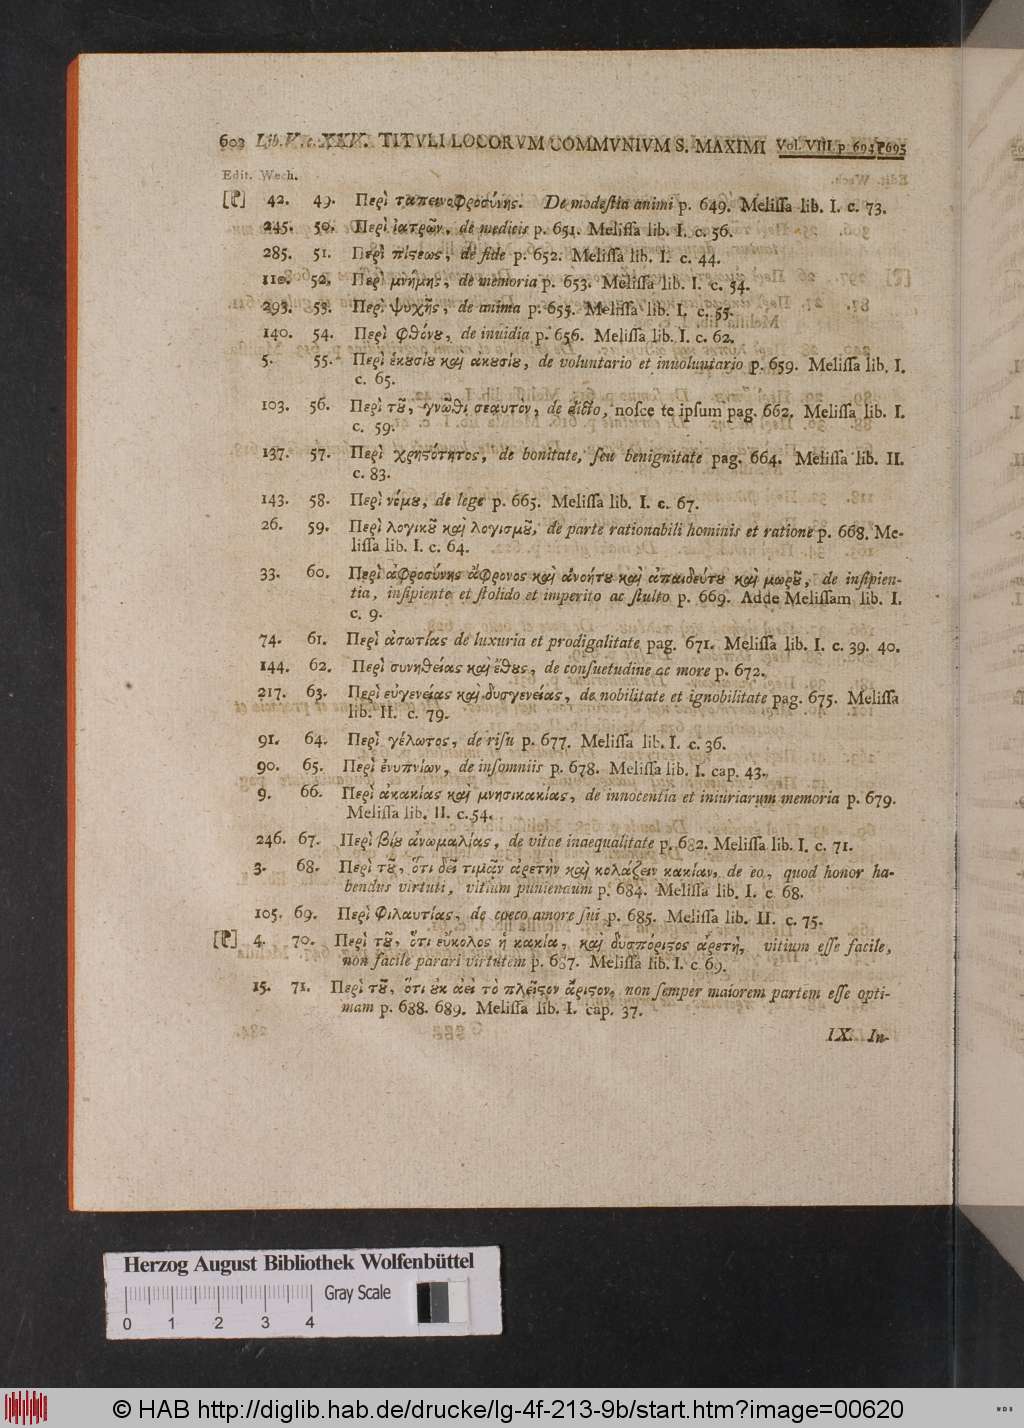 602 Lib. V. c. XXIV. TITVLI LOCORVM COMMVNIVM S. MAXIMI Vol. VIII. p. 693 P 695
Edit. Wech.
[P] 42. 49. Περὶ ταπεινοφροσύνης. De modeſtia animi p. 649. Meliſſa lib. I. c. 73.
245. 50. Περὶ ἰατρῶν, de medicis p. 651. Meliſſa lib. I. c. 56.
285. 51. Περὶ πίϛεως, de fide p. 652. Meliſſa lib. I. c. 44.
110. 52. Περὶ μνήμης, de memoria p. 653. Meliſſa lib. I. c. 54.
293. 53. Περὶ ψυχῆς, de anima p. 655. Meliſſa lib. I. c. 55.
140. 54. Περὶ φθόνȣ, de inuidia p. 656. Meliſſa lib. I. c. 62.
5. 55. Περὶ ἑκȣσίȣ καὶ ἀκȣσίȣ, de voluntario et inuoluntario p. 659. Meliſſa lib. I.
c. 65.
103. 56. Περὶ τȣ͂, γνῶθι σεαυτὸν, de dicto, noſce te ipſum pag. 662. Meliſſa lib. I.
c. 59.
137. 57. Περὶ χρηϛότητος, de bonitate, ſeu benignitate pag. 664. Meliſſa lib. II.
c. 83.
143. 58. Περὶ νόμȣ, de lege p. 665. Meliſſa lib. I. c. 67.
26. 59. Περὶ λογικȣ͂ καὶ λογισμȣ͂, de parte rationabili hominis et ratione p. 668. Me-
liſſa lib. I. c. 64.
33. 60. Περὶ ἀφροσύνης ἄφρονος καὶ ἀνοήτȣ καὶ ἀπαιδεύτȣ καὶ μωρȣ͂, de inſipien-
tia, inſipiente et ſtolido et imperito ac ſtulto p. 669. Adde Meliſſam lib. I.
c. 9.
74. 61. Περὶ ἀσωτίας de luxuria et prodigalitate pag. 671. Meliſſa lib. I. c. 39. 40.
144. 62. Περὶ συνηθείας καὶ ἔθȣς, de conſuetudine ac more p. 672.
217. 63. Περὶ εὐγενείας καὶ δυσγενείας, de nobilitate et ignobilitate pag. 675. Meliſſa
lib. II. c. 79.
91. 64. Περὶ γέλωτος, de riſu p. 677. Meliſſa lib. I. c. 36.
90. 65. Περὶ ἐνυπνίων, de inſomniis p. 678. Meliſſa lib. I. cap. 43.
9. 66. Περὶ ἀκακίας καὶ μνησικακίας, de innocentia et iniuriarum memoria p. 679.
Meliſſa lib. II. c. 54.
246. 67. Περὶ βίȣ ἀνωμαλίας, de vitae inaequalitate p. 682. Meliſſa lib. I. c. 71.
3. 68. Περὶ τȣ͂, ὅτι δεῖ τιμᾷν ἀρετὴν καὶ κολάζειν κακίαν, de eo, quod honor ha-
bendus virtuti, vitium puniendum p. 684. Meliſſa lib. I. c 68.
105. 69. Περὶ Φιλαυτίας, de coeco amore ſui p. 685. Meliſſa lib. II. c. 75.
[P] 4. 70. Περὶ τȣ͂, ὅτι εὔκολος ἡ κακία, καὶ δυσπόριϛος ἀρετὴ, vitium eſſe facile,
non facile parari virtutem p. 687. Meliſſa lib. I. c. 69.
15. 71. Περὶ τȣ͂, ὅτι ȣ̓κ ἀεὶ τὸ πλεῖϛον ἄριϛον, non ſemper maiorem partem eſſe opti-
mam p. 688. 689. Meliſſa lib. I. cap. 37.
IX. In-
Herzog August Bibliothek Wolfenbüttel
Gray Scale
0 1 2 3 4
© HAB http://diglib.hab.de/drucke/lg-4f-213-9b/start.htm?image=00620